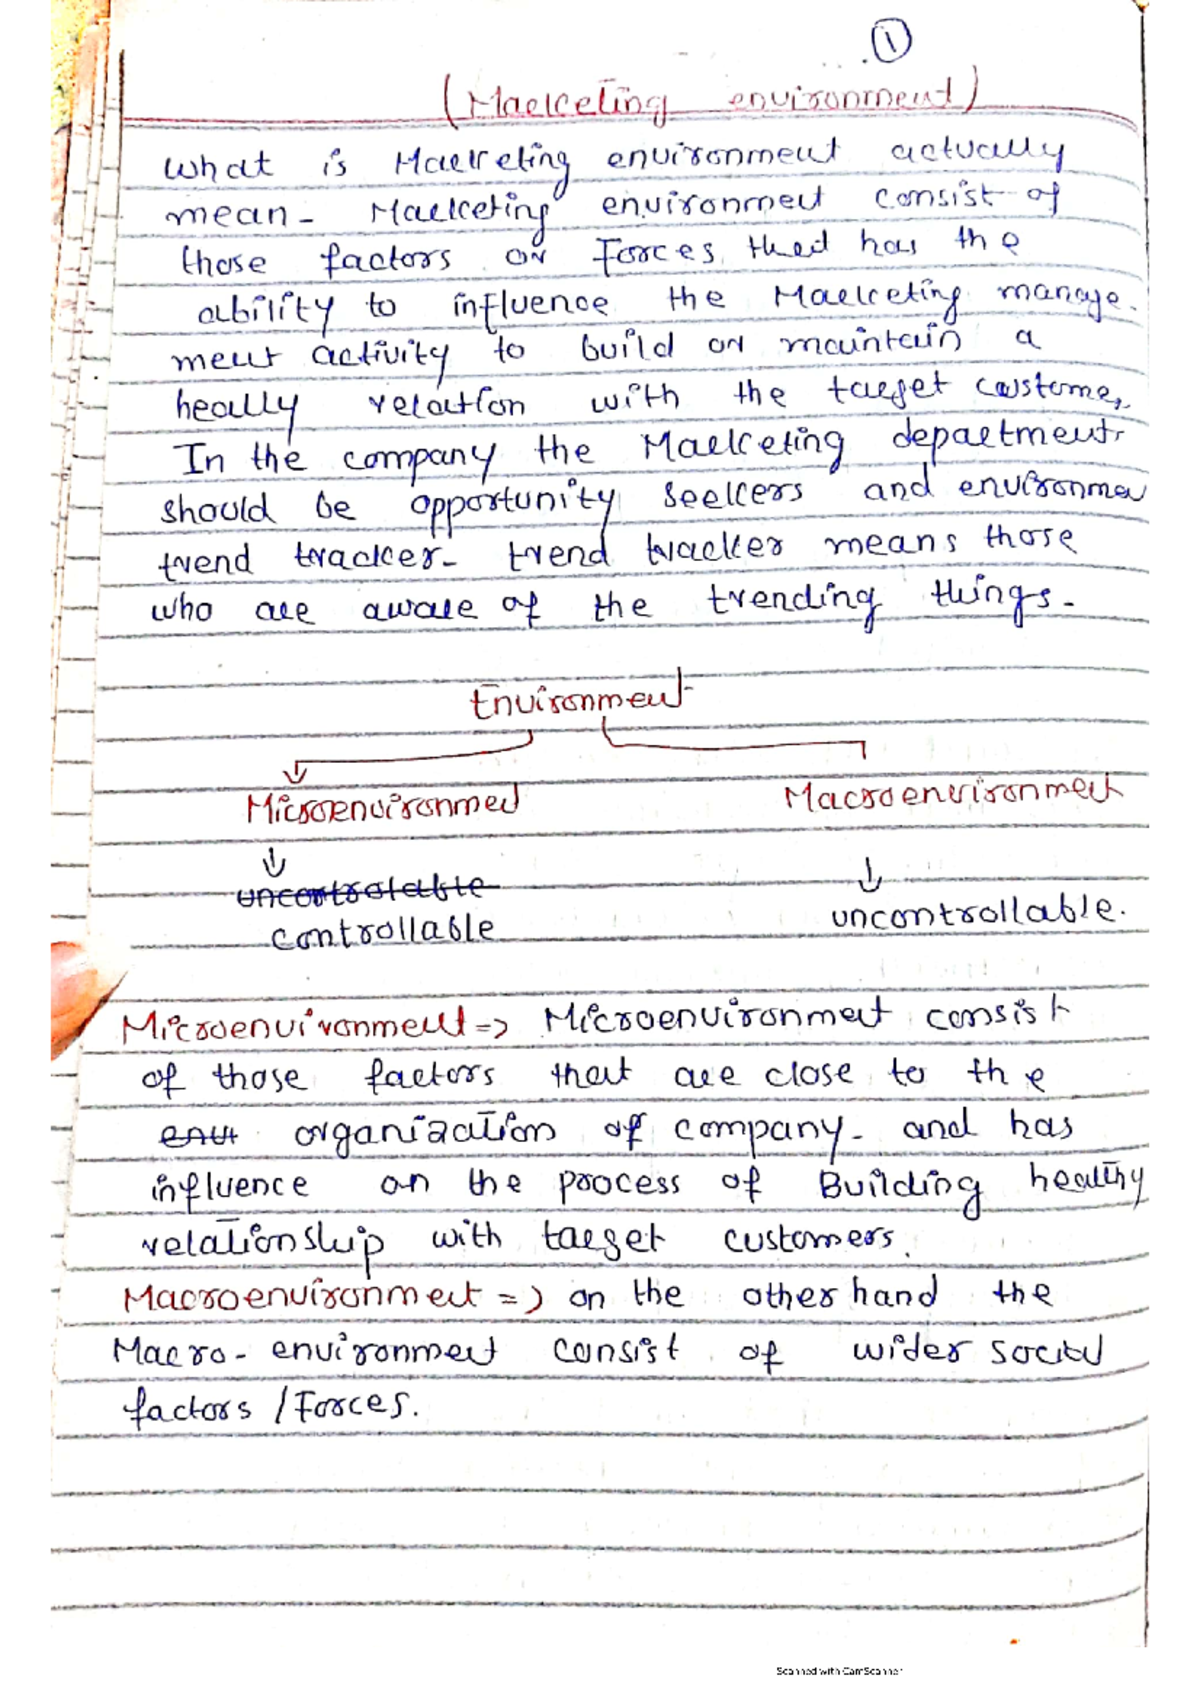 1
(Marketing environment)
What is Marketing environment actually
mean - Marketing environment consist of
those factors or Forces that has the
ability to influence the Marketing manage-
ment activity to build or maintain a
heally relation with the target custome,
In the company the Marketing department
should be opportunity seekers and environmen
trend tracker - trend tracker means those
who are aware of the trending things -
Environment
Microenvironment Macroenvironment
uncontrolable
controllable uncontrollable.
Microenvironment => Microenvironment consist
of those factors that are close to the
organization of company - and has
influence on the process of Building healthy
relationship with target customers.
Macroenvironment => on the other hand the
Macro - environment consist of wider social
factors / Forces.
Scanned with CamScanner